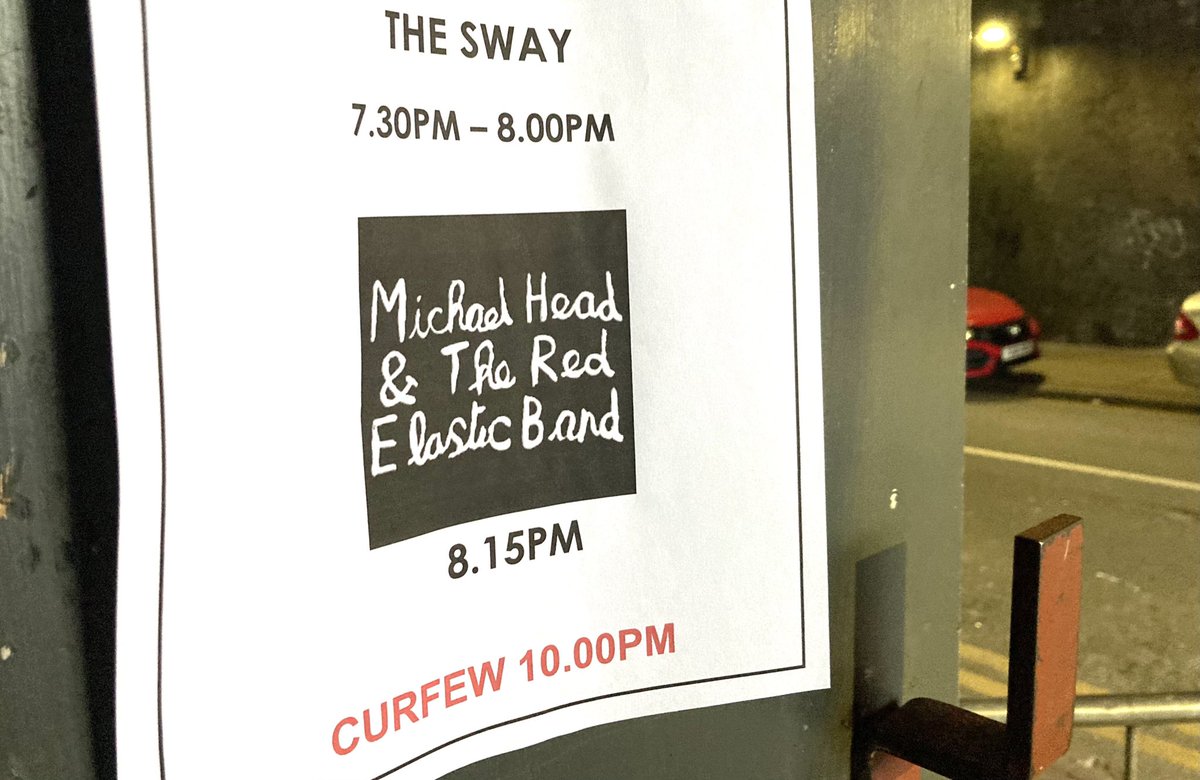 THE SWAY
7.30PM – 8.00PM
Michael Head
& The Red
Elastic Band
8.15PM
CURFEW 10.00PM